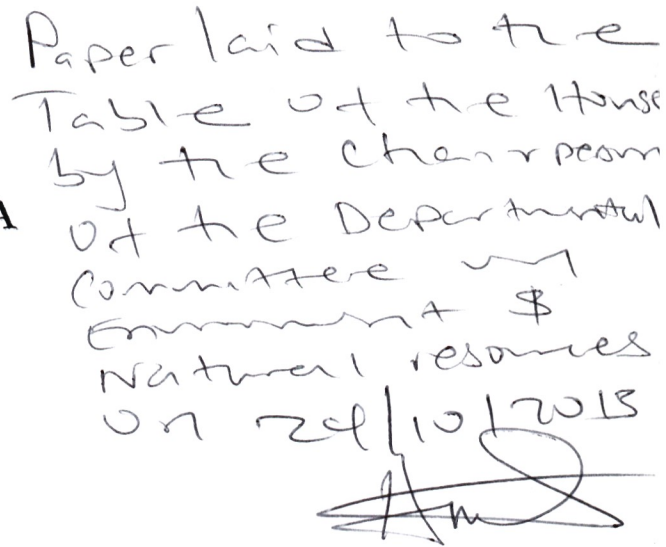 Paper laid to the
Table of the House
by the Chairperson
A of the Departmental
Committee on
Environment &
Natural resources
on